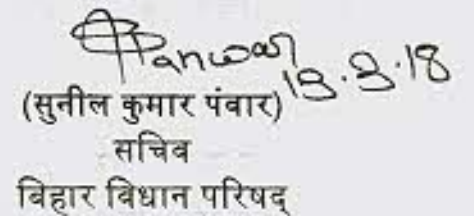 Panwar
13.3.18
(सुनील कुमार पंवार)
सचिव
बिहार विधान परिषद्